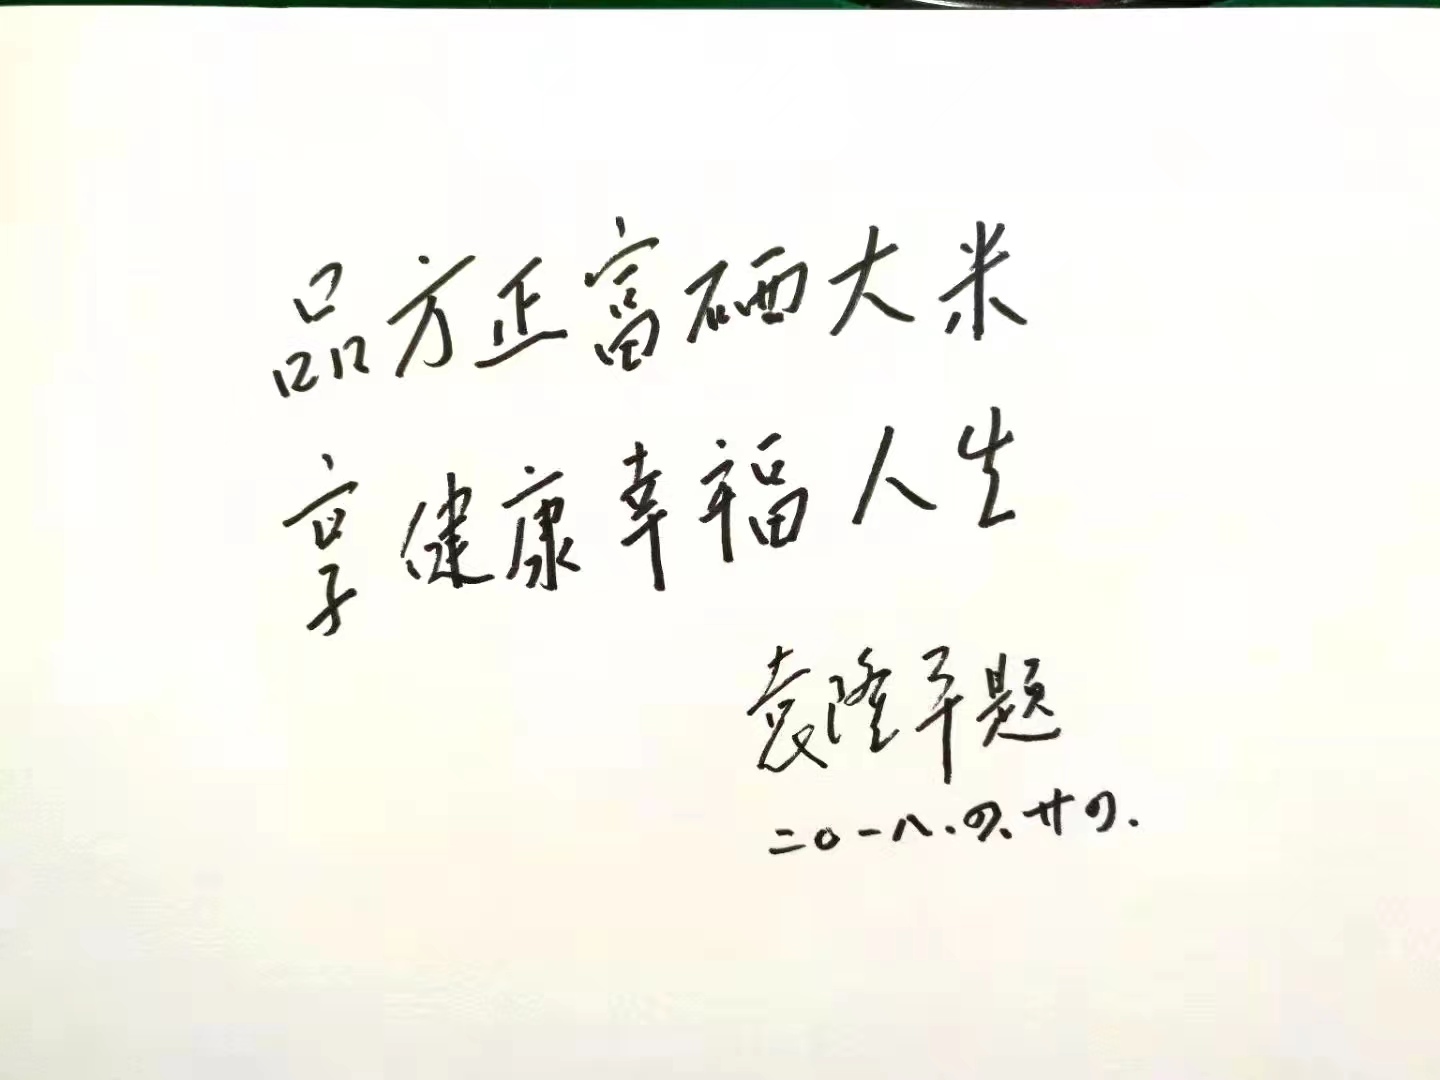 品方正富硒大米
享健康幸福人生
袁隆平题
二〇一八.四.廿四.